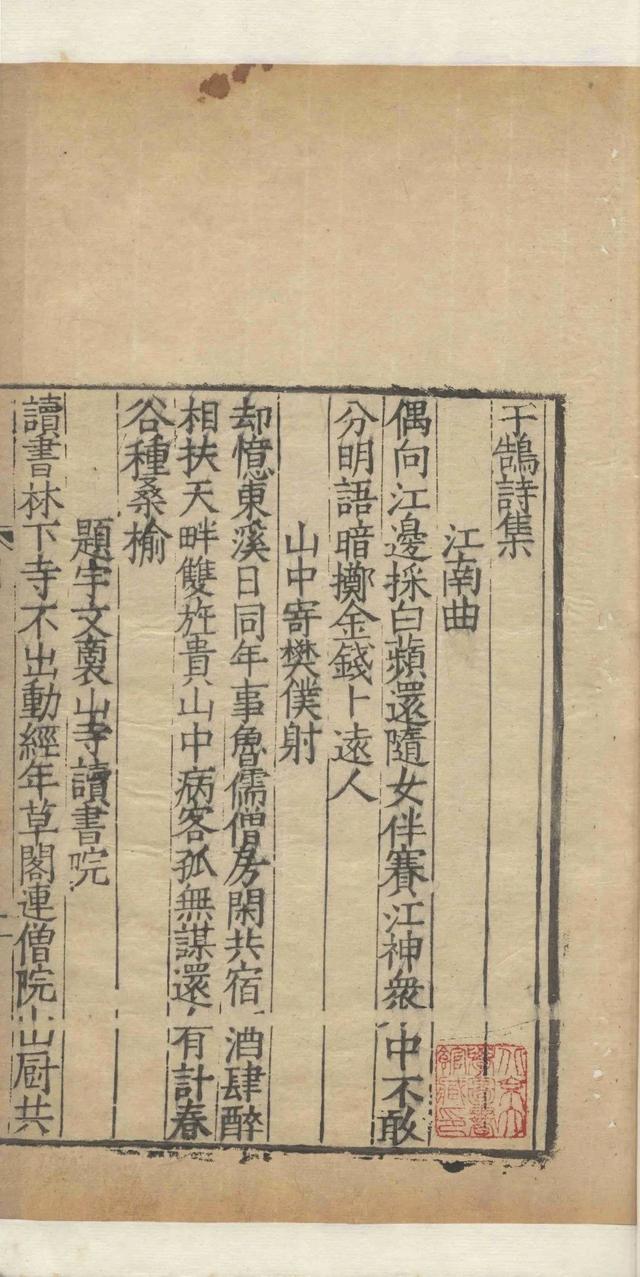 于鵠詩集
江南曲
偶向江邊採白蘋還隨女伴賽江神衆中不敢
分明語暗擲金錢卜遠人
山中寄樊僕射
却憶東溪日同年事魯儒僧房閑共宿酒肆醉
相扶天畔雙旌貴山中病客孤無謀還有計春
谷種桑榆
題宇文褧山寺讀書院
讀書林下寺不出動經年草閣連僧院山厨共
北京大學圖書館藏印